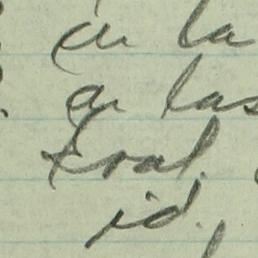 en la
en las
tral.
id.